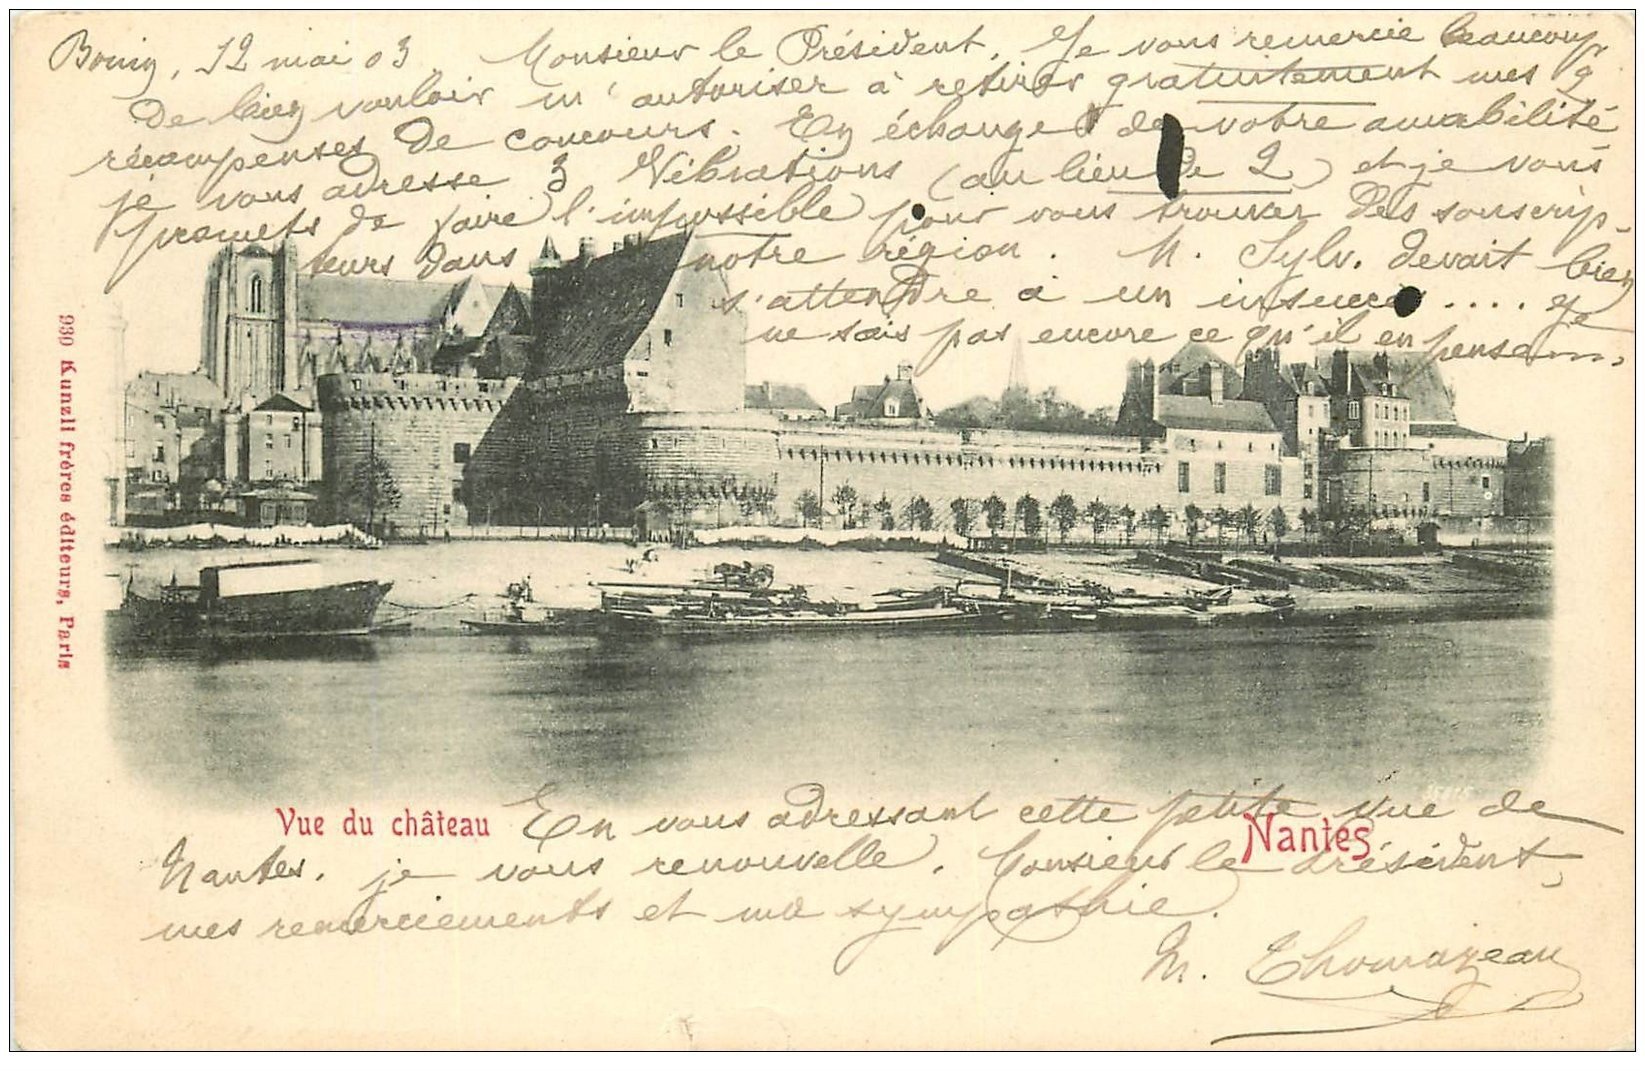 Bouin, 12 mai 03. Monsieur le Président, Je vous remercie beaucoup
de bien vouloir m'autoriser à retirer gratuitement mes 9
récompenses de concours. En échange de votre amabilité
je vous adresse 3 Vibrations (au lieu de 2) et je vous
promets de faire l'impossible pour vous trouver des souscrip-
teurs dans notre région. M. Sylv. devait bien
s'attendre à un insuccès .... Je
ne sais pas encore ce qu'il en pense
939 Kunzli frères éditeurs, Paris
Vue du château
Nantes
En vous adressant cette petite vue de
Nantes, je vous renouvelle, Monsieur le Président,
mes remerciements et ma sympathie.
M. Thomazeau